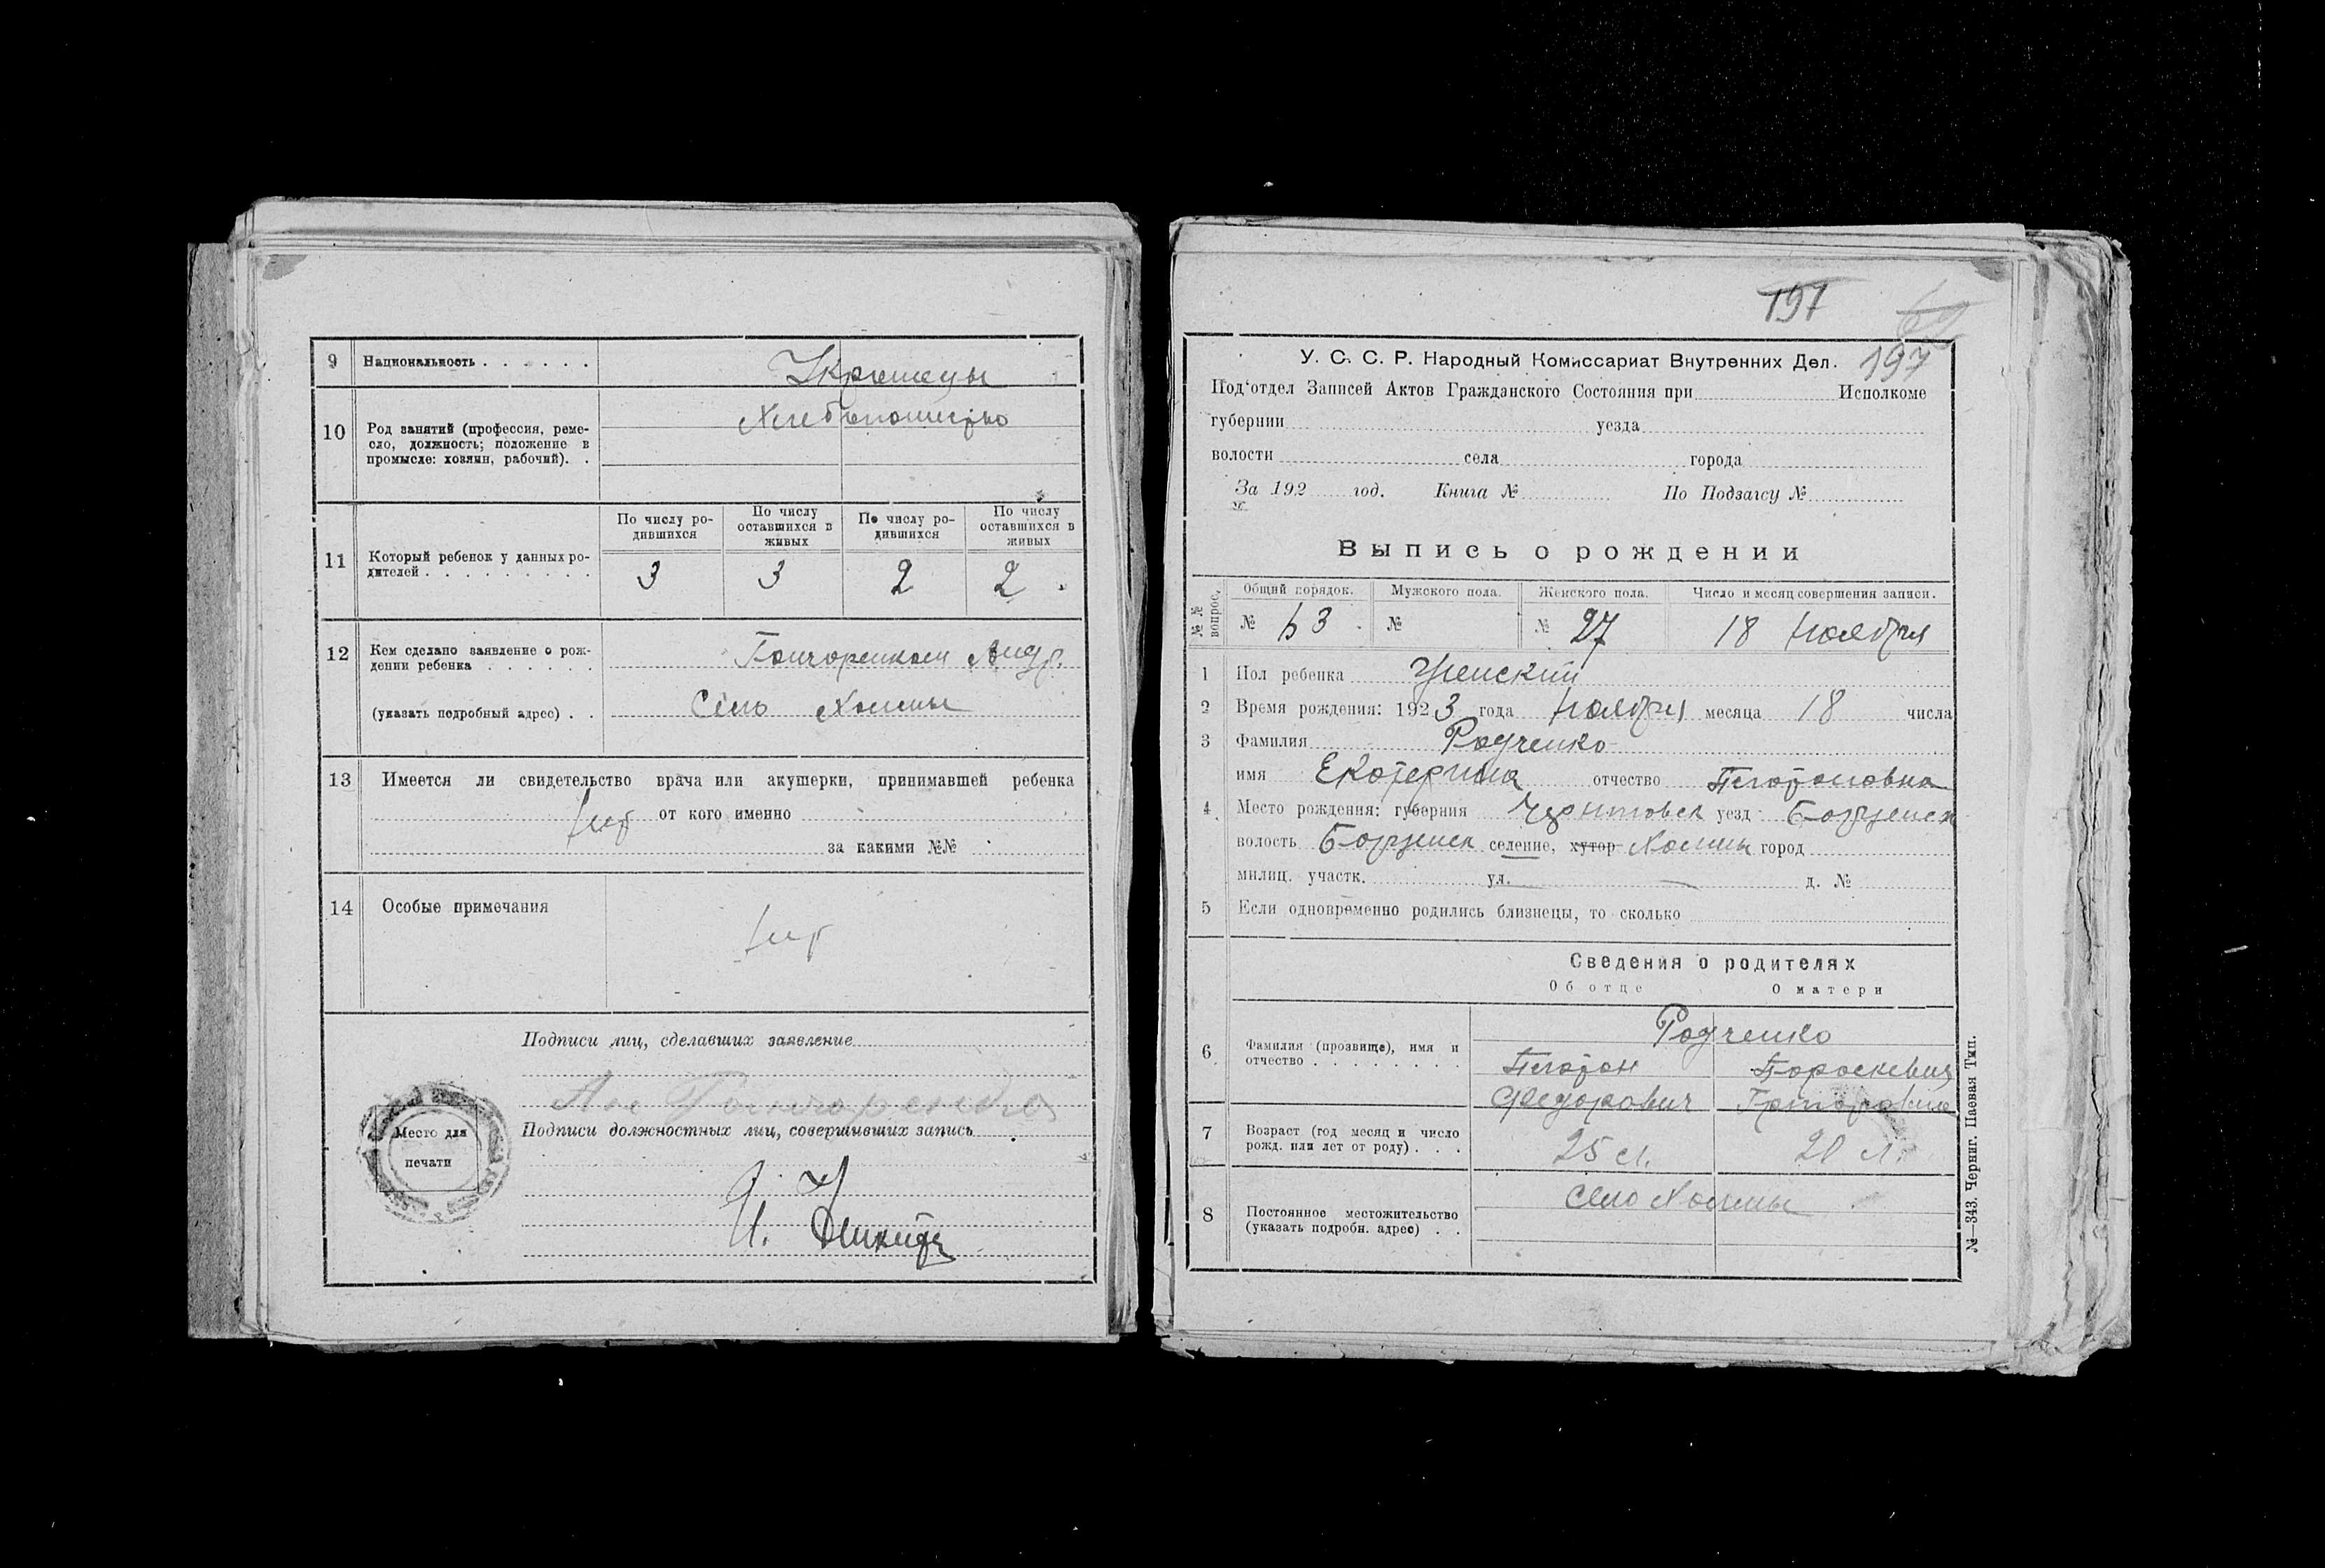 9 Национальность . . . . . . Украинцы
10 Род занятий (профессия, реме-
сло, должность; положение в
промысле: хозяин, рабочий). .
Хлебопашество
11 Который ребенок у данных ро-
дителей . . . . . . . . . .
По числу ро-
дившихся
По числу
оставшихся в
живых
По числу ро-
дившихся
По числу
оставшихся в
живых
3 3 2 2
12 Кем сделано заявление о рож-
дении ребенка . . . . . . Гончаренком Анд.
(указать подробный адрес) . . Село Холмы
13 Имеется ли свидетельство врача или акушерки, принимавшей ребенка
нет от кого именно
за какими №№
14 Особые примечания
нет
Подписи лиц, сделавших заявление
Гончаренко
Подписи должностных лиц, совершивших запись
Место для
печати
197
У. С. С. Р. Народный Комиссариат Внутренних Дел. 197
Под'отдел Записей Актов Гражданского Состояния при Исполкоме
губернии уезда
волости села города
За 192 год. Книга № По Подзагсу №
Выпись о рождении
№№ вопрос.
Общий порядок. Мужского пола. Женского пола. Число и месяц совершения записи.
№ 53 № № 27 18 Ноября
1 Пол ребенка Женский
2 Время рождения: 1923 года Ноября месяца 18 числа
3 Фамилия Радченко
имя Екатерина отчество Платоновна
4 Место рождения: губерния Черниговск уезд Борзенск
волость Борзенск селение, хутор Холмы город
милиц. участк. ул. д. №
5 Если одновременно родились близнецы, то сколько
Сведения о родителях
Об отце О матери
6 Фамилия (прозвище), имя и
отчество . . . . . . . .
Радченко
Платон Параскевия
Федорович Григоровна
7 Возраст (год месяц и число
рожд. или лет от роду) . . .
25 л. 20 л.
8 Постоянное местожительство
(указать подробн. адрес) . .
село Холмы
№—343. Черниг. Паевая Тип.